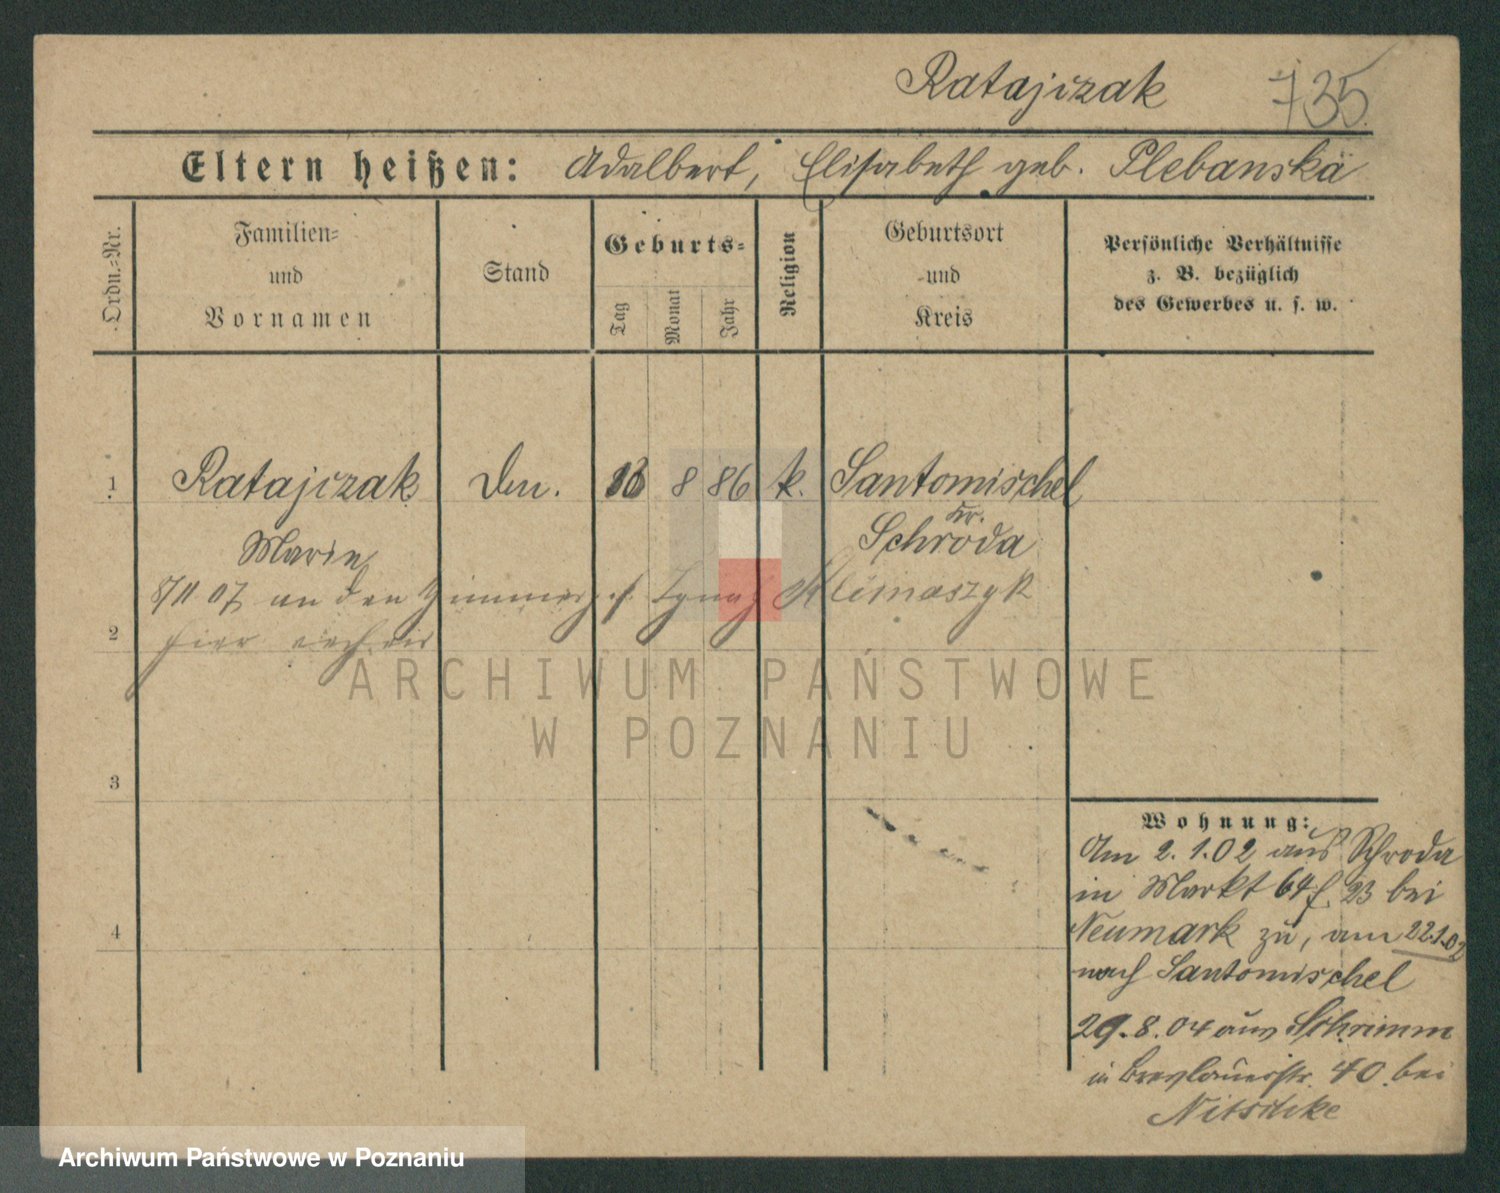 Ratajczak 735
Eltern heißen: Adalbert, Elisabeth geb. Plebanska
Ordn.=Nr.
Familien=
und
Vornamen
Stand
Geburts=
Tag
Monat
Jahr
Religion
Geburtsort
und
Kreis
Persönliche Verhältnisse
z. B. bezüglich
des Gewerbes u. s. w.
1 Ratajczak 8 86 k. Santomischel
Kr.
Marie Schroda
8/11 07 an den Zimmerges. Ignatz Klimaszyk
2 hier
3
4
ARCHIWUM PAŃSTWOWE
W POZNANIU
Wohnung:
Am 2.1.02 aus Schroda
in Markt 64 f. 23 bei
Neumark zu, am 22.1.02
nach Santomischel
29.8.04 aus Schrimm
in Breslauerstr. 40 bei
Nitschke
Archiwum Państwowe w Poznaniu